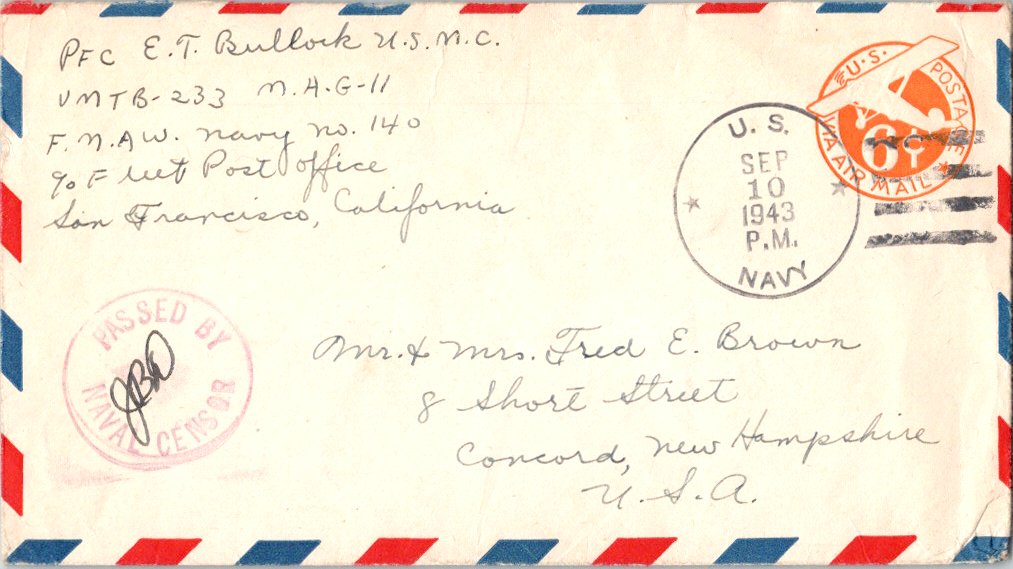 PFC E.T. Bullock U.S.M.C.
VMTB-233 M.A.G-11
F.M.A.W. Navy No. 140
c/o Fleet Post Office
San Francisco, California
U.S. POSTAGE
6¢
VIA AIR MAIL
U.S.
SEP
10
1943
P.M.
NAVY
PASSED BY
JBW
NAVAL CENSOR
Mr. & Mrs. Fred E. Brown
8 Short Street
Concord, New Hampshire
U.S.A.